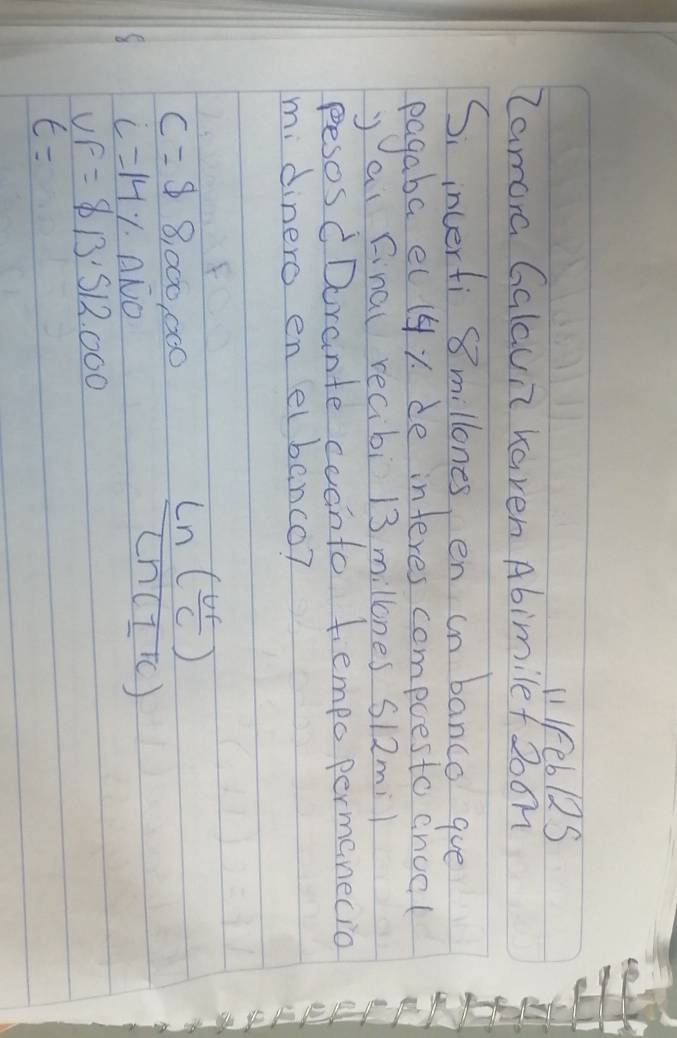 11/Feb/25
Zamora Galaviz Karen Abimilet 206M
Si inverti 8 millones, en un banco que
pagaba el 14% de interes compuesto anual
y al final recibi 13 millones 512 mil
pesos ¿Durante cuánto tiempo permanecio
mi dinero en el banco?
C = $ 8,000,000
i = 14% AÑO
VF = $13'512.000
t =
Ln (VF/C)
Ln(1+i)